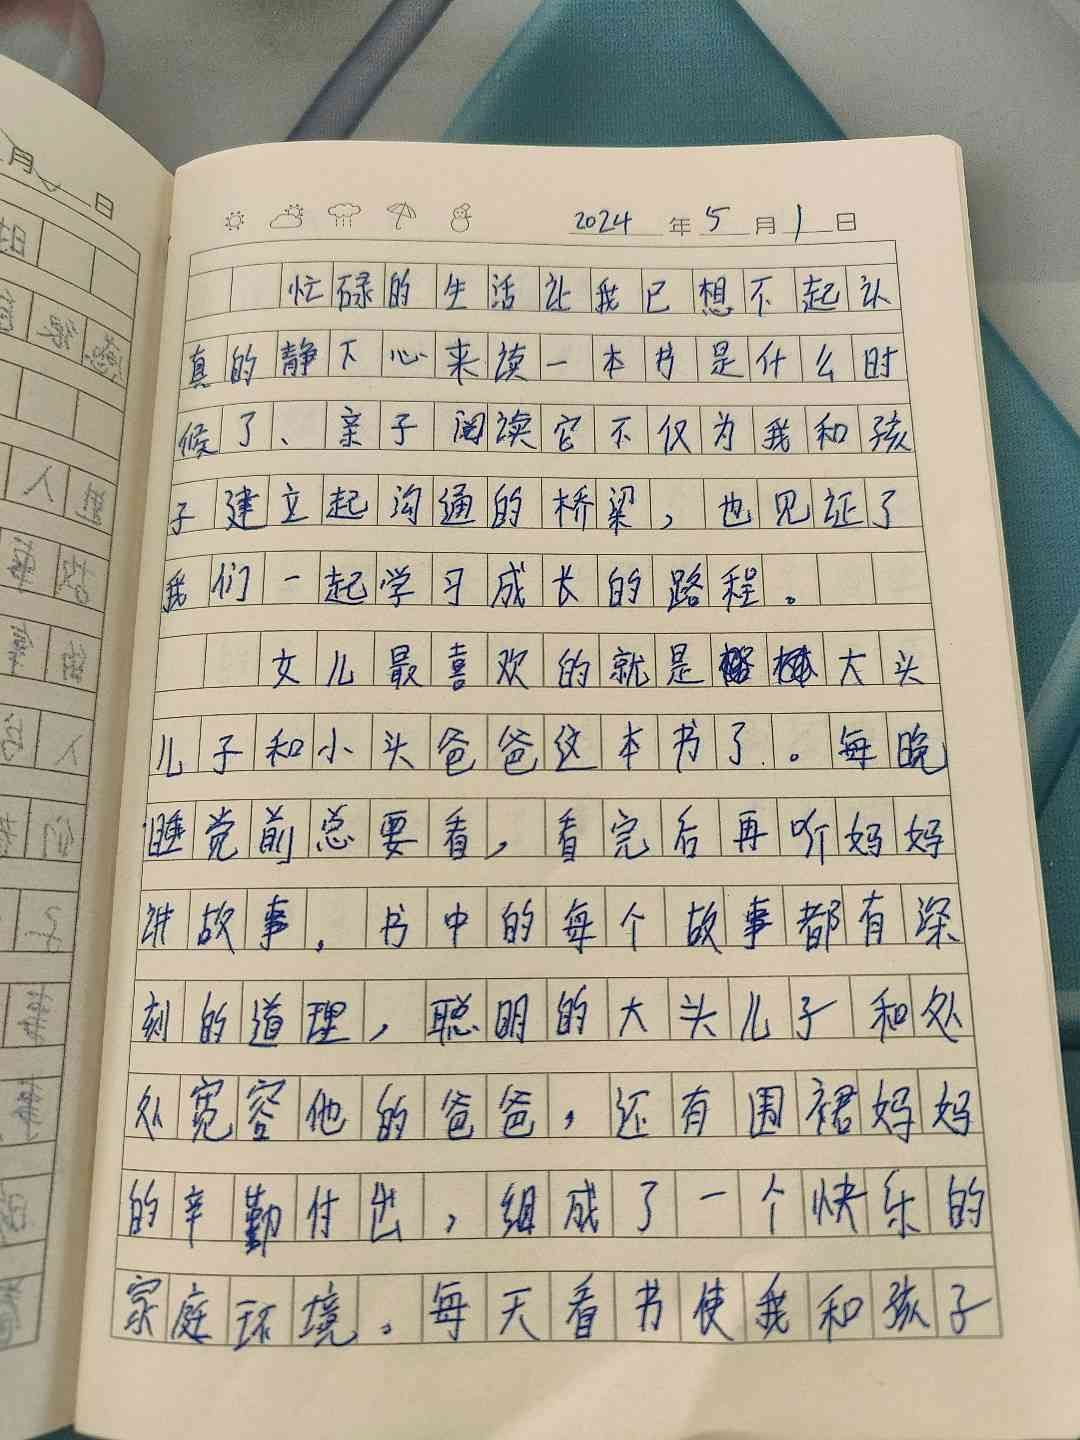 2024年5月1日
忙碌的生活让我已想不起认
真的静下心来读一本书是什么时
候了、亲子阅读它不仅为我和孩
子建立起沟通的桥梁，也见证了
我们一起学习成长的路程。
女儿最喜欢的就是大头
儿子和小头爸爸这本书了。每晚
睡觉前总要看，看完后再听妈妈
讲故事，书中的每个故事都有深
刻的道理，聪明的大头儿子和处
处宽容他的爸爸，还有围裙妈妈
的辛勤付出，组成了一个快乐的
家庭环境。每天看书使我和孩子